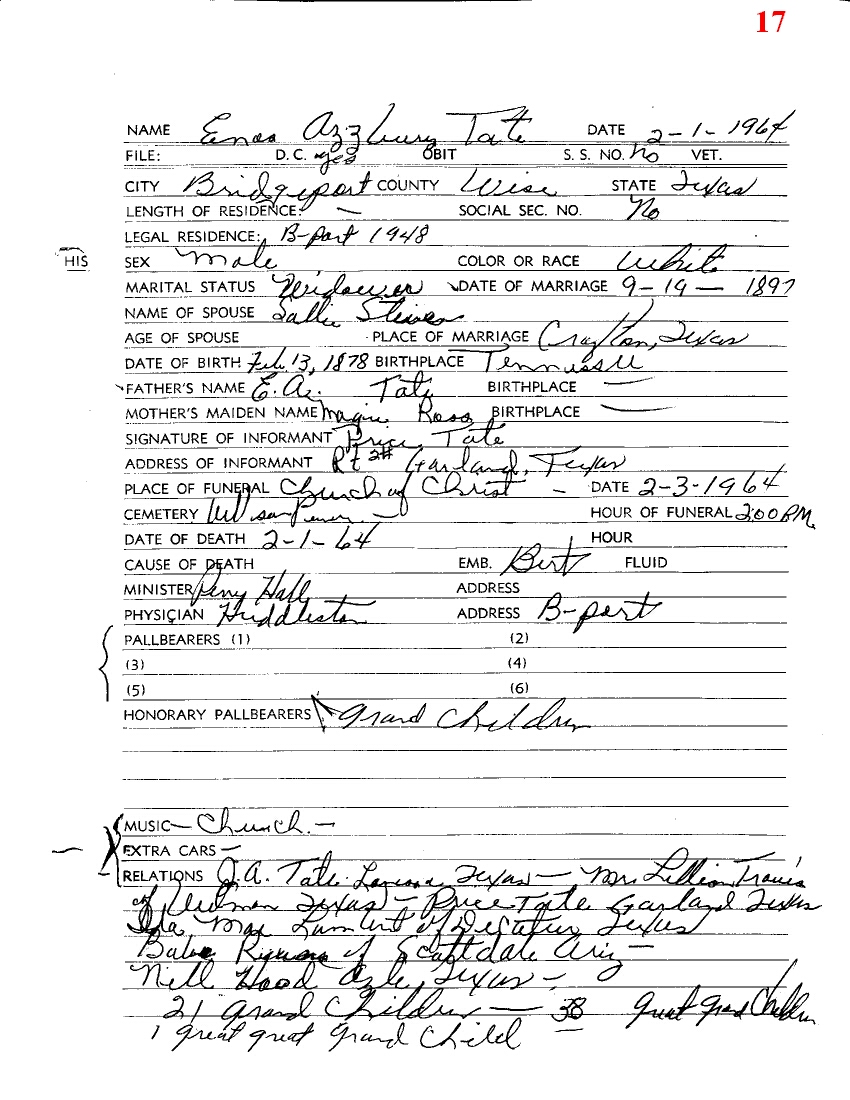 17
NAME Enos Azzbury Tate DATE 2-1-1964
FILE: D.C. yes OBIT S. S. NO. No VET.
CITY Bridgeport COUNTY Wise STATE Texas
LENGTH OF RESIDENCE: — SOCIAL SEC. NO. No
LEGAL RESIDENCE: B-port 1948
HIS
SEX Male COLOR OR RACE White
MARITAL STATUS Widower DATE OF MARRIAGE 9-19-1897
NAME OF SPOUSE Sallie
AGE OF SPOUSE PLACE OF MARRIAGE Texas
DATE OF BIRTH Feb. 13, 1878 BIRTHPLACE Tennessee
FATHER'S NAME E. A. Tate BIRTHPLACE —
MOTHER'S MAIDEN NAME Magie Ross BIRTHPLACE —
SIGNATURE OF INFORMANT Price Tate
ADDRESS OF INFORMANT Rt 2# Garland, Texas
PLACE OF FUNERAL Church of Christ — DATE 2-3-1964
CEMETERY HOUR OF FUNERAL 2:00 P.M.
DATE OF DEATH 2-1-64 HOUR
CAUSE OF DEATH EMB. Bert FLUID
MINISTER Perry Hall ADDRESS
PHYSICIAN Huddleston ADDRESS B-port
PALLBEARERS (1) (2)
(3) (4)
(5) (6)
HONORARY PALLBEARERS Grand Children
MUSIC — Church. —
EXTRA CARS —
RELATIONS J. A. Tate Texas — Mrs Lillian Travis
of Texas — Price Tate Garland Texas
Ida Mae Lambert of Decatur Texas
of Scottdale Ariz —
Nell Hood Azle, Texas —
21 Grand Children — 38 Great Grand Children
1 great great grand Child